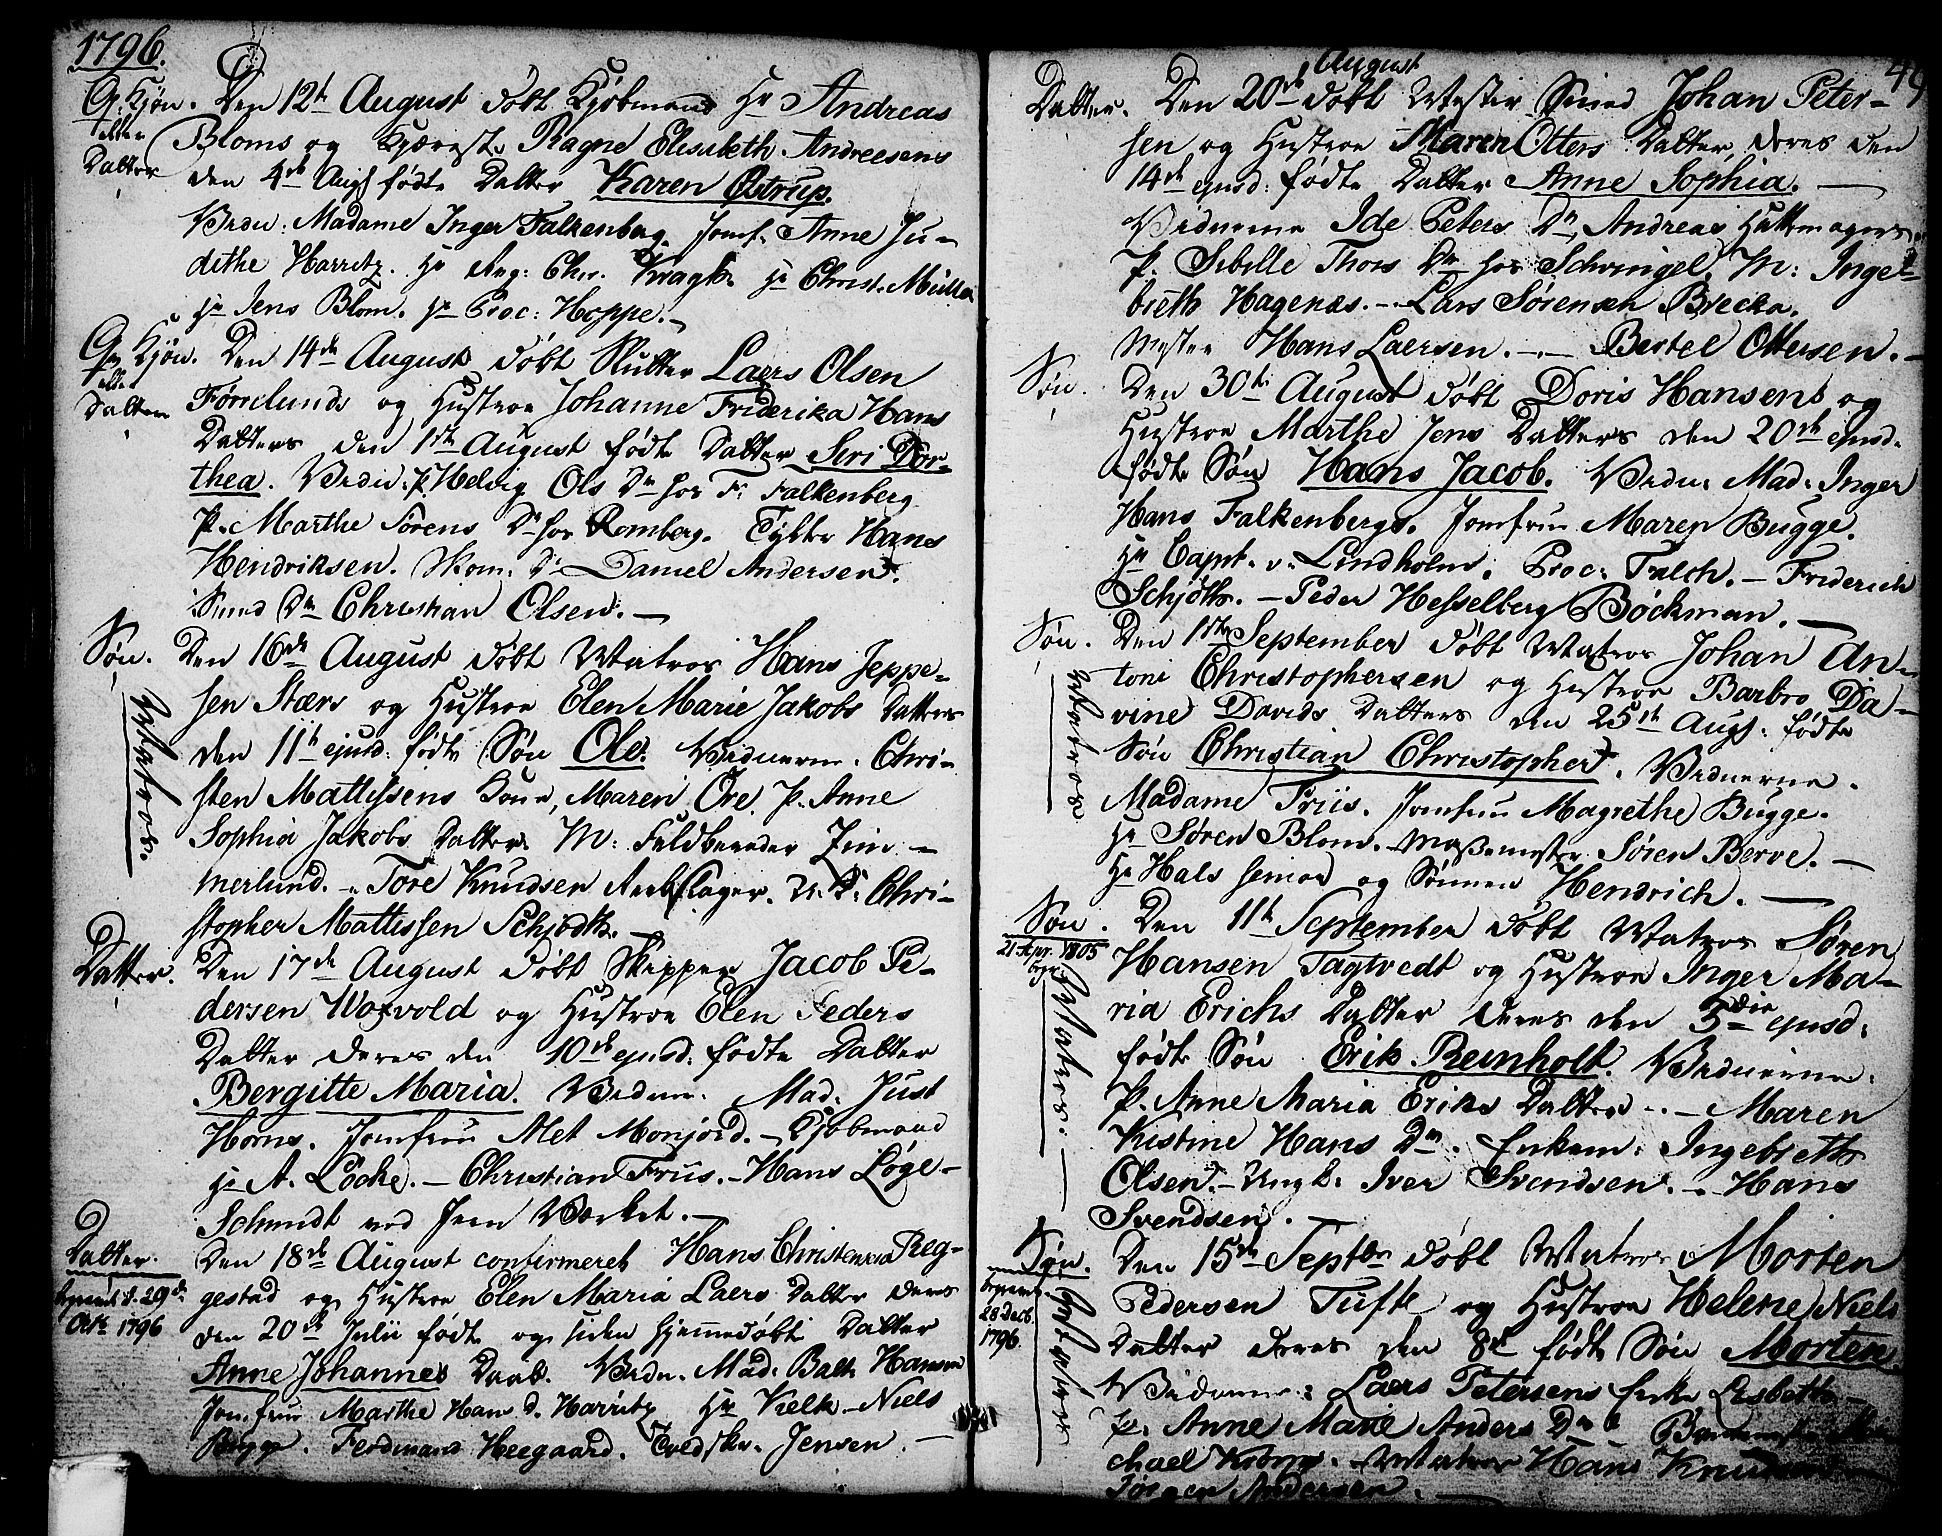 1796.
Q. Kjøn. Den 12th August døbt Kjøbmand Hr Andreas
eller Bloms og Kjæreste Ragne Elisabeth Andreesens
Datter den 4de Augs fødte Datter Karen Østrup.
Vidn: Madame Inger Falkenberg. Jomf. Anne Ju-
dithe Harritz. Hr Aug: Chr. Kragh. Hr Christ. Müller
Hr Jens Blom. Hr Proc: Hoppe.
Q. Kjøn. Den 14de August døbt Slutter Laers Olsen
eller
Datter Førrelunds og Hustroe Johanne Friderika Hans
Datters den 1ste August fødte Datter Siri Dor-
thea. Vidn: p. Helvig Ols Dr hos F. Falkenberg
P. Marthe Sørens Dr hos Romberg. Tylter Hans
Hendriksen. Skom. D. Daniel Andersen.
Smed Dr Christian Olsen.
Søn. Den 16de August døbt Matros Hans Jeppe-
sen Stærs og Hustroe Elen Marie Jakobs Datters
Matros.
den 11te ejusd: fødte Søn Ole. Vidnerne. Chri-
sten Mattissens Kone, Maren Ore, P. Anne
Sophia Jakobs Datter. M: Feldbereder Zim-
merlund. Tore Knudsen U. K. Chri-
stopher Mattissen Schjødt.
Datter. Den 17de August døbt Skipper Jacob Pe-
dersen Woxvold og Hustroe Elen Peders
Datter deres den 10de ejusd: fødte Datter
Bergitte Maria. Vidne. Mad. Just
Horns. Jomfrue Alet Monjord. Kjøbmand
Hr A. Löcke. Christian Friis. Hans Løge
Schmidt ved Jern Værket.
Datter. Den 18de August confirmeret Hans Christensen Reg-
begravet d. 29de gestad og Hustroe Elen Maria Laers Datter deres
Octb 1796 den 20de Julii fødte og siden hjemmedøbt Datter
Anne Johannes Daab. Vidn. Mad. Balt. Hansen
Jomfrue Marthe Hans d. Harritz Hr Kielk. Niels
Bugge. Ferdinand Heegaard. Jensen.
Datter. Den 20de August døbt Mester Smed Johan Peter-
sen og Hustroe Maren Otters Datter, deres den
14de ejusd: fødte Datter Anne Sophia.
Vidnerne Ide Peters Dr, Andreas Hattemagers.
P. Sibille Thors Dr hos Schwingel. M: Inge-
breth Hagenæs. Lars Sørensen Brecka.
Mester Hans Laersen. Bertel Ottersen.
Søn. Den 30te August døbt Doris Hansens og
Hustroe Marthe Jens Datters den 20de ejusd.
fødte Søn Hans Jacob. Vidn. Mad. Inger
Hans Falkenbergs. Jomfrue Maren Bugge.
Hr Capt. v. Lindholm. Proc: Falch. Friderich
Schjøth. Peder Hesselberg Böckman.
Søn. Den 1ste September døbt Matros Johan An-
toni Christophersen og Hustroe Barbro Da-
Matros
vine Davids Datters den 25de Augs: fødte
Søn Christian Christopher. Vidnerne.
Madame Friis. Jomfrue Magrethe Bugge.
Hr Søren Blom. Maßemester Søren Berve.
Hr Hals senior og Sønnen Hendrich.
Søn. Den 11te September døbt Matros Søren
21 Apr. 1805 Hansen Tagtvedt og Hustroe Inger Ma-
Matros.
ria Erichs Datter deres den 5die ejusd:
fødte Søn Erik Reinholt. Vidnerne.
P. Anne Maria Eriks Datter. Maren
Kistine Hans Dr. Enkem: Ingebreth
Olsen. Ung K. Iver Svendsen. Hans
Svendsen.
Søn. Den 15de Septbr døbt Matros Morten
begravet Pedersen Tufte og Hustroe Helene Niels
28 Decb. 1796. Datter deres den 8de fødte Søn Morten.
Matros
Vidnerne: Laers Petersens Enke Lisbeth
p. Anne Marie Anders Dr
chael Matros Hans
Jørgen Andersen.